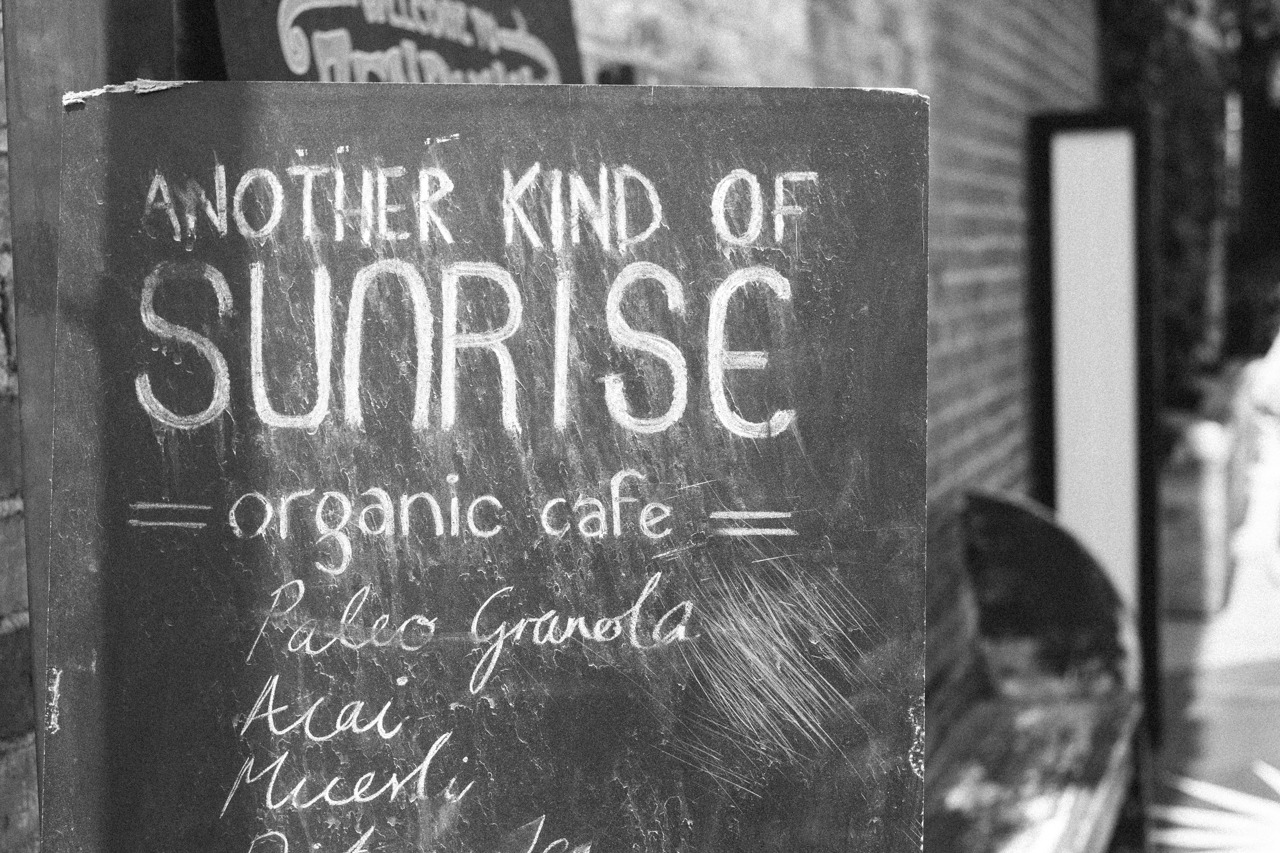 WELCOME TO
ANOTHER KIND OF
SUNRISE
organic cafe
Paleo Granola
Acai
Muesli